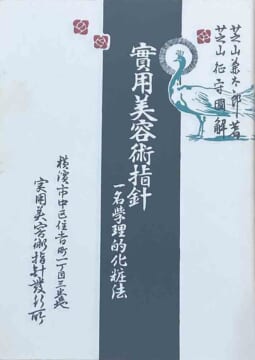 芝山兼太郎著
芝山征守図解
實用美容術指針
一名學理的化粧法
横濱市中区住吉町一丁目三番地
実用美容術指針發行所